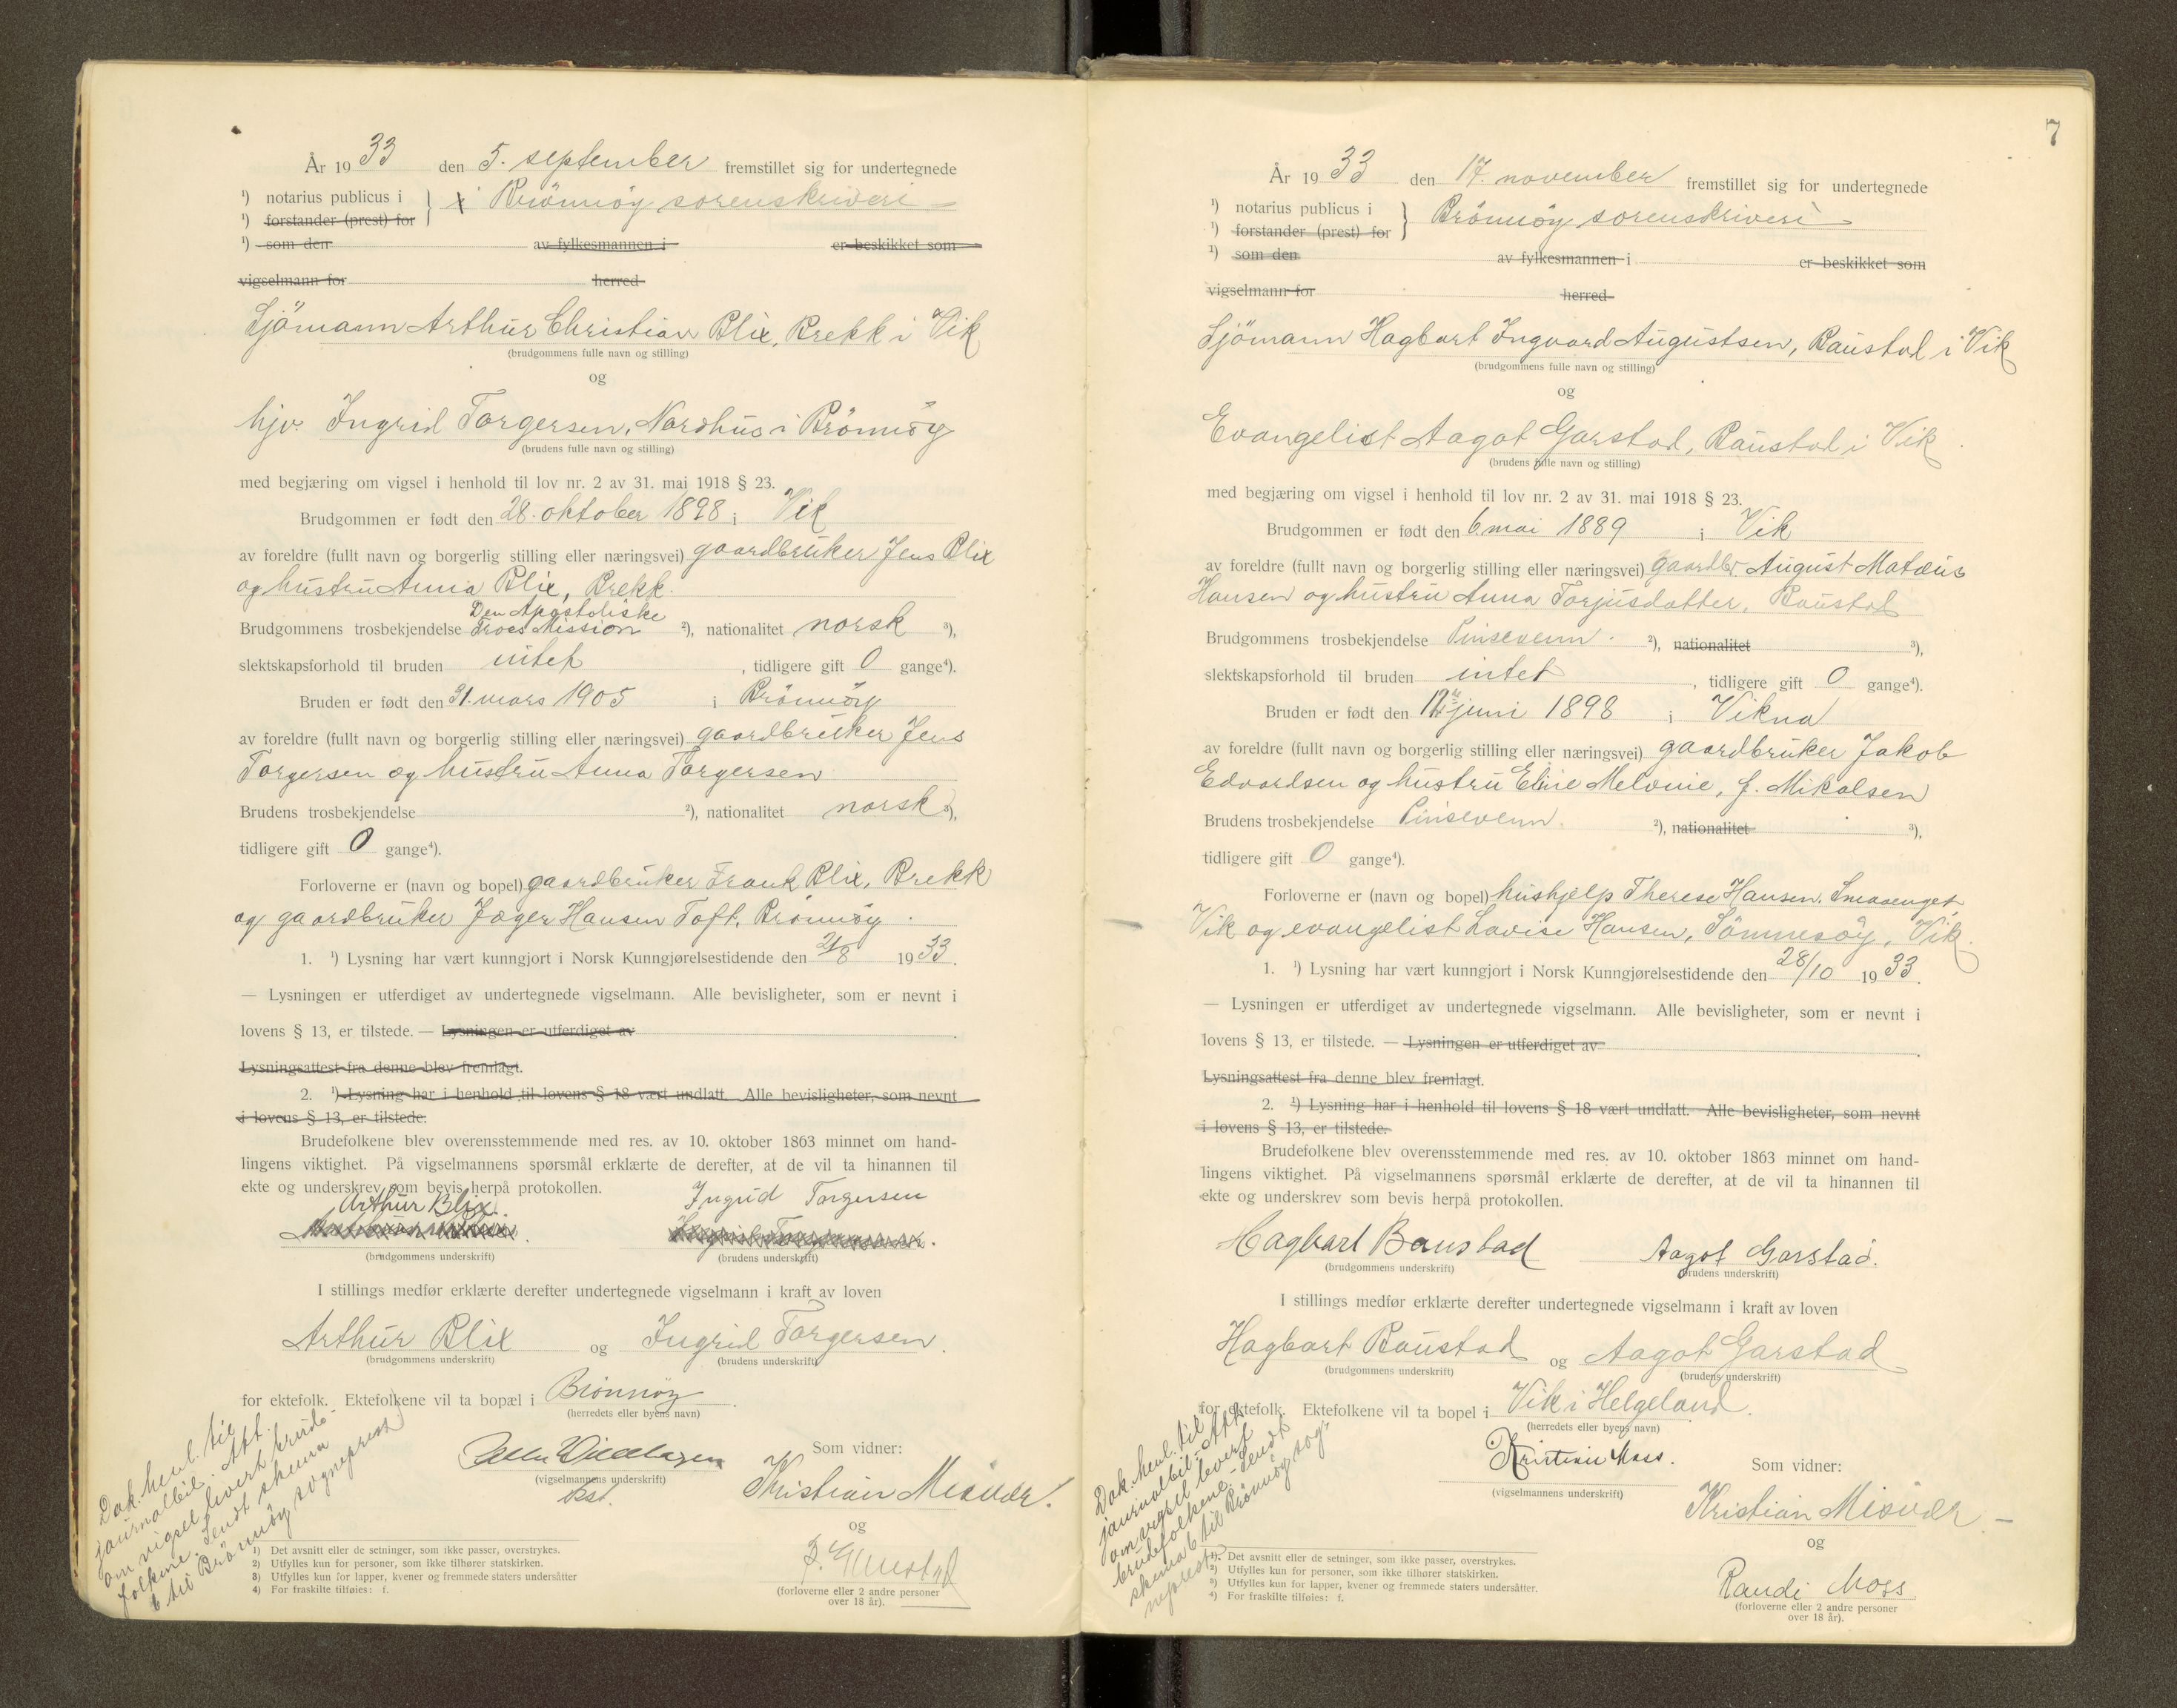 År 1933 den 5. september fremstillet sig for undertegnede
¹) notarius publicus i } i Brönnöy sorenskriveri
¹) forstander (prest) for
¹) som den av fylkesmannen i er beskikket som
vigselmann for herred
Sjömann Arthur Christian Blix, Brekk i Vik
(brudgommens fulle navn og stilling)
og
hjv. Ingrid Torgersen, Nordhus i Brönnöy
(brudens fulle navn og stilling)
med begjæring om vigsel i henhold til lov nr. 2 av 31. mai 1918 § 23.
Brudgommen er født den 28. oktober 1898 i Vik
av foreldre (fullt navn og borgerlig stilling eller næringsvei) gaardbruker Jens Blix
og hustru Anna Blix, Brekk.
Den Apostoliske
Brudgommens trosbekjendelse Troes Mission ²), nationalitet norsk ³),
slektskapsforhold til bruden intet, tidligere gift 0 gange⁴).
Bruden er født den 31. mars 1905 i Brönnöy
av foreldre (fullt navn og borgerlig stilling eller næringsvei) gaardbruker Jens
Torgersen og hustru Anna Torgersen
Brudens trosbekjendelse ²), nationalitet norsk ³),
tidligere gift 0 gange⁴).
Forloverne er (navn og bopel) gaardbruker Frank Blix, Brekk
og gaardbruker Jæger Hansen Toft, Brönnöy.
1. ¹) Lysning har vært kunngjort i Norsk Kunngjørelsestidende den 21/8 1933.
— Lysningen er utferdiget av undertegnede vigselmann. Alle bevisligheter, som er nevnt i
lovens § 13, er tilstede. — Lysningen er utferdiget av
Lysningsattest fra denne blev fremlagt.
2. ¹) Lysning har i henhold til lovens § 18 vært undlatt. Alle bevisligheter, som nevnt
i lovens § 13, er tilstede.
Brudefolkene blev overensstemmende med res. av 10. oktober 1863 minnet om hand-
lingens viktighet. På vigselmannens spørsmål erklærte de derefter, at de vil ta hinannen til
ekte og underskrev som bevis herpå protokollen.
Arthur Blix. Ingrid Torgersen
(brudgommens underskrift) (brudens underskrift)
I stillings medfør erklærte derefter undertegnede vigselmann i kraft av loven
Arthur Blix og Ingrid Torgersen.
(brudgommens underskrift) (brudens underskrift)
for ektefolk. Ektefolkene vil ta bopæl i Brönnöy.
(herredets eller byens navn)
Som vidner:
(vigselmannens underskrift)
Kristian Misvær.
og
(forloverne eller 2 andre personer
over 18 år).
Dok. henl. til
journalbil. Att.
om vigsel livert brude-
folkene. Sendt skema
6 til Brönnöy sogneprest
1) Det avsnitt eller de setninger, som ikke passer, overstrykes.
2) Utfylles kun for personer, som ikke tilhører statskirken.
3) Utfylles kun for lapper, kvener og fremmede staters undersåtter
4) For fraskilte tilføies: f.
7
År 1933 den 17. november fremstillet sig for undertegnede
¹) notarius publicus i } Brönnöy sorenskriveri
¹) forstander (prest) for
¹) som den av fylkesmannen i er beskikket som
vigselmann for herred
Sjömann Hagbart Ingvard Augustsen, Baustad i Vik
(brudgommens fulle navn og stilling)
og
Evangelist Aagot Garstad, Baustad i Vik.
(brudens fulle navn og stilling)
med begjæring om vigsel i henhold til lov nr. 2 av 31. mai 1918 § 23.
Brudgommen er født den 6. mai 1889 i Vik
av foreldre (fullt navn og borgerlig stilling eller næringsvei) gaardbr. August Matæus
Hansen og hustru Anna Torjusdatter, Baustad
Brudgommens trosbekjendelse Pinsevenn. ²), nationalitet ³),
slektskapsforhold til bruden intet, tidligere gift 0 gange⁴).
Bruden er født den 12. juni 1898 i Vikna
av foreldre (fullt navn og borgerlig stilling eller næringsvei) gaardbruker Jakob
Edvardsen og hustru Eline Melonie, f. Mikalsen
Brudens trosbekjendelse Pinsevenn. ²), nationalitet ³),
tidligere gift 0 gange⁴).
Forloverne er (navn og bopel) hushjelp Therese Hansen, Smaaenget,
Vik og evangelist Lovise Hansen, Sömnesöy, Vik.
1. ¹) Lysning har vært kunngjort i Norsk Kunngjørelsestidende den 28/10 1933.
— Lysningen er utferdiget av undertegnede vigselmann. Alle bevisligheter, som er nevnt i
lovens § 13, er tilstede. — Lysningen er utferdiget av
Lysningsattest fra denne blev fremlagt.
2. ¹) Lysning har i henhold til lovens § 18 vært undlatt. Alle bevisligheter, som nevnt
i lovens § 13, er tilstede.
Brudefolkene blev overensstemmende med res. av 10. oktober 1863 minnet om hand-
lingens viktighet. På vigselmannens spørsmål erklærte de derefter, at de vil ta hinannen til
ekte og underskrev som bevis herpå protokollen.
Hagbart Baustad Aagot Garstad.
(brudgommens underskrift) (brudens underskrift)
I stillings medfør erklærte derefter undertegnede vigselmann i kraft av loven
Hagbart Baustad og Aagot Garstad
(brudgommens underskrift) (brudens underskrift)
for ektefolk. Ektefolkene vil ta bopel i Vik i Helgeland.
(herredets eller byens navn)
Kristian Moss. Som vidner:
(vigselmannens underskrift)
Kristian Misvær
og
Randi Moss
(forloverne eller 2 andre personer
over 18 år).
Dok. henl. til
journalbil. Att.
om vigsel levert
brudefolkene. Sendt
skema 6 til Brönnöy sog-
neprest
1) Det avsnitt eller de setninger, som ikke passer, overstrykes.
2) Utfylles kun for personer, som ikke tilhører statskirken.
3) Utfylles kun for lapper, kvener og fremmede staters undersåtter.
4) For fraskilte tilføies: f.